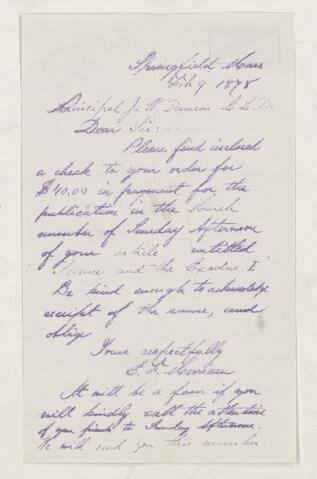 Springfield Mass
Feb 9, 1878
Principal J. W. Dawson L.L.D.
Dear Sir:—
Please find inclosed
a check to your order for
$40.00 in payment for the
publication in the March
number of Sunday Afternoon
of your article entitled
"Science and the Exodus. I"
Be kind enough to acknowledge
receipt of the same, and
oblige
Yours respectfully
It will be a favor if you
will kindly call the attention
of your friends to Sunday Afternoon.
We will send you this number.